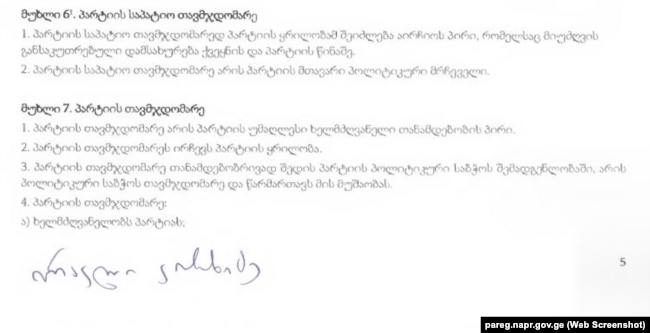 მუხლი 6¹. პარტიის საპატიო თავმჯდომარე
1. პარტიის საპატიო თავმჯდომარედ პარტიის ყრილობამ შეიძლება აირჩიოს პირი, რომელსაც მიუძღვის
განსაკუთრებული დამსახურება ქვეყნის და პარტიის წინაშე.
2. პარტიის საპატიო თავმჯდომარე არის პარტიის მთავარი პოლიტიკური მრჩეველი.
მუხლი 7. პარტიის თავმჯდომარე
1. პარტიის თავმჯდომარე არის პარტიის უმაღლესი ხელმძღვანელი თანამდებობის პირი.
2. პარტიის თავმჯდომარეს ირჩევს პარტიის ყრილობა.
3. პარტიის თავმჯდომარე თანამდებობრივად შედის პარტიის პოლიტიკური საბჭოს შემადგენლობაში, არის
პოლიტიკური საბჭოს თავმჯდომარე და წარმართავს მის მუშაობას.
4. პარტიის თავმჯდომარე:
ა) ხელმძღვანელობს პარტიას;
5
pareg.napr.gov.ge (Web Screenshot)